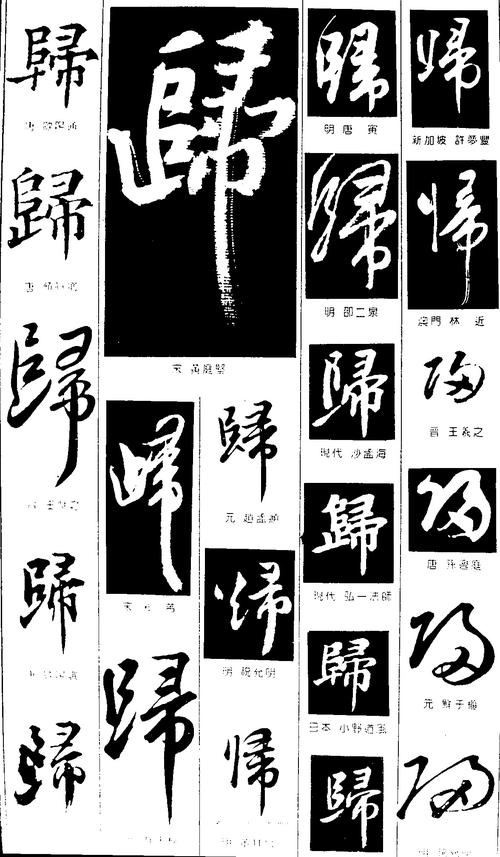 歸
唐 歐陽詢
歸
歸
歸
歸
歸
宋 黃庭堅
歸
歸
歸
元 趙孟頫
歸
明 祝允明
歸
歸
明 唐 寅
歸
明 邵二泉
歸
現代 沙孟海
歸
現代 弘一法師
歸
日本 小野道風
歸
歸
新加坡 許夢豐
歸
澳門 林 近
歸
晋 王羲之
歸
唐 孫過庭
歸
元 鮮于樞
歸